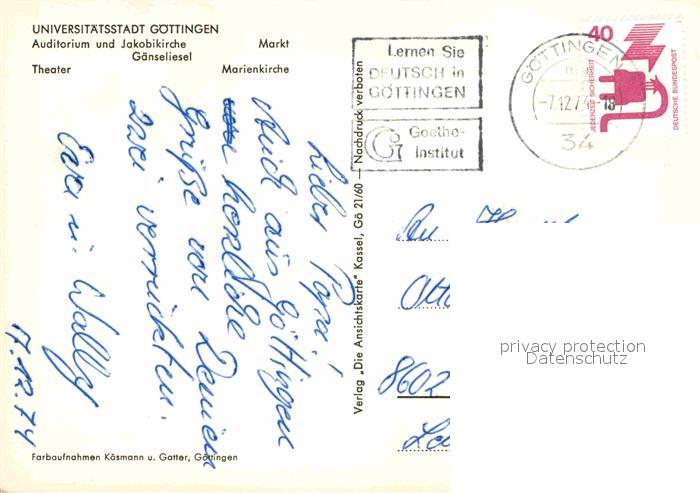 UNIVERSITÄTSSTADT GÖTTINGEN
Auditorium und Jakobikirche Markt
Gänseliesel
Theater Marienkirche
Lieber Papa!
Auch aus Göttingen
herzliche
Grüße von Deinen
zwei verrückten.
Eva u. Wally
7.12.74
Farbaufnahmen Käsmann u. Gatter, Göttingen
Verlag „Die Ansichtskarte" Kassel, Gö 21/60 — Nachdruck verboten
Lernen Sie
DEUTSCH in
GÖTTINGEN
Goethe-
Institut
GÖTTINGEN
-7.12.74-18
34
40
JEDERZEIT SICHERHEIT
DEUTSCHE BUNDESPOST
An
Otto
8602
privacy protection
Datenschutz